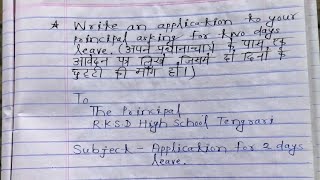 * Write an application to your
principal asking for two days
leave. (अपने प्रधानाचार्य के पास एक
आवेदन पत्र लिखें जिसमें दो दिनों के
छुट्टी की मांग हो।)
To
The Principal
R.K.S.D High School Tengrari
Subject - Application for 2 days
leave.